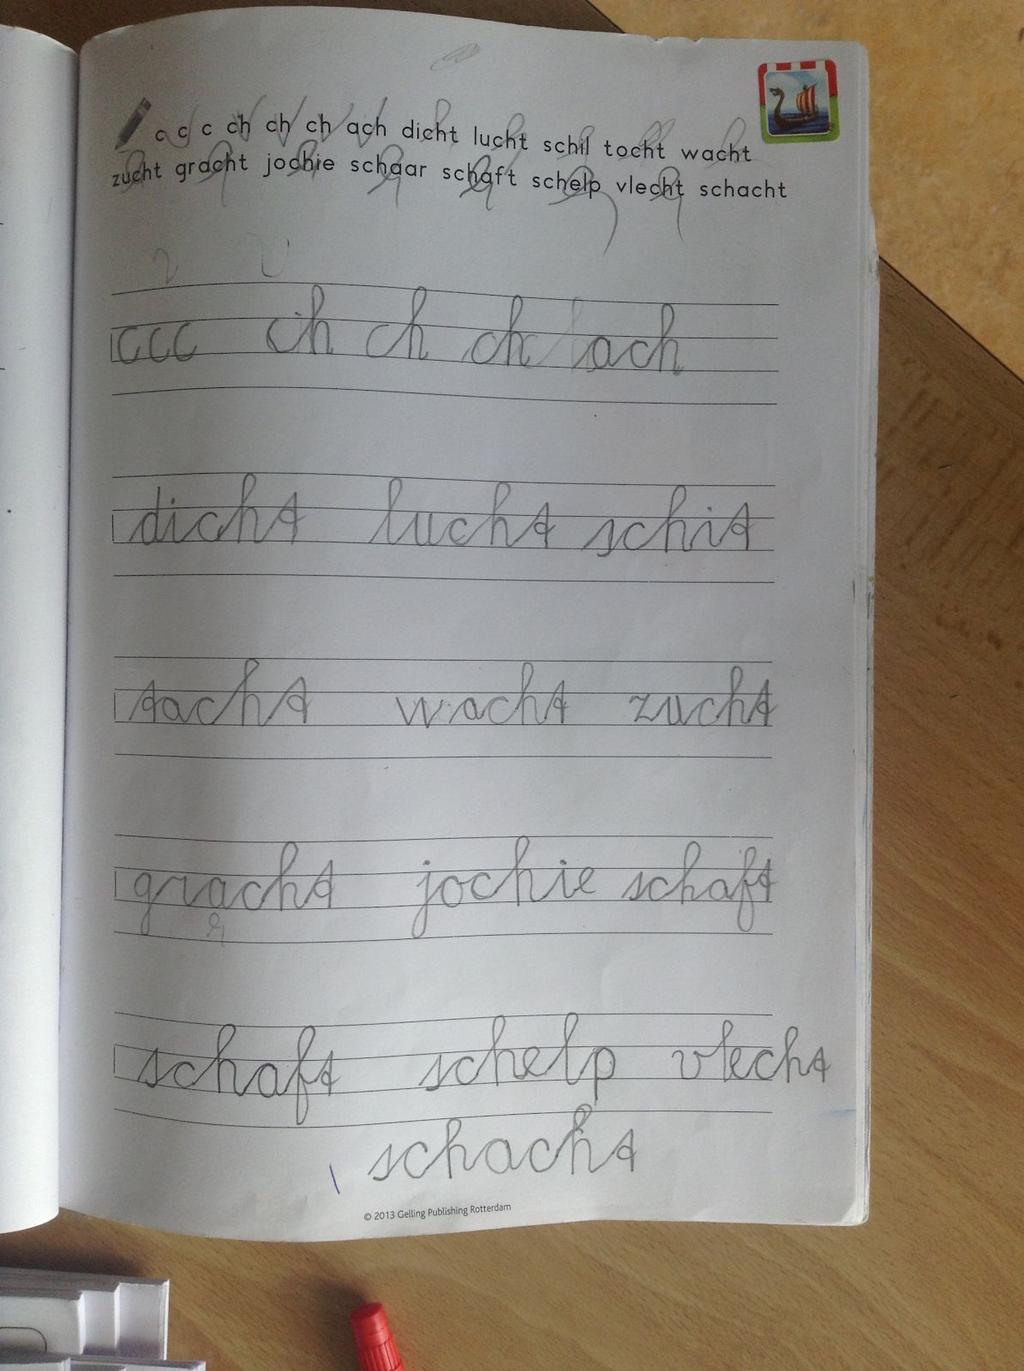 c c c ch ch ch ach dicht lucht schil tocht wacht
zucht gracht jochie schaar schaft schelp vlecht schacht
ccc ch ch ch ach
dicht lucht schit
tacht wacht zucht
gracht jochie schaft
schaft schelp vlecht
schacht
© 2013 Gelling Publishing Rotterdam